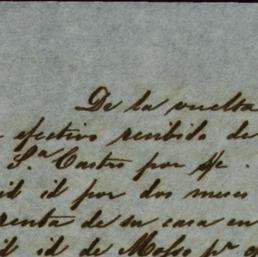 De la vuelta
efectivo recibido de
S.ª Castro por s/c.
id id por dos meses
renta de su casa en
id id de Mosso p.r